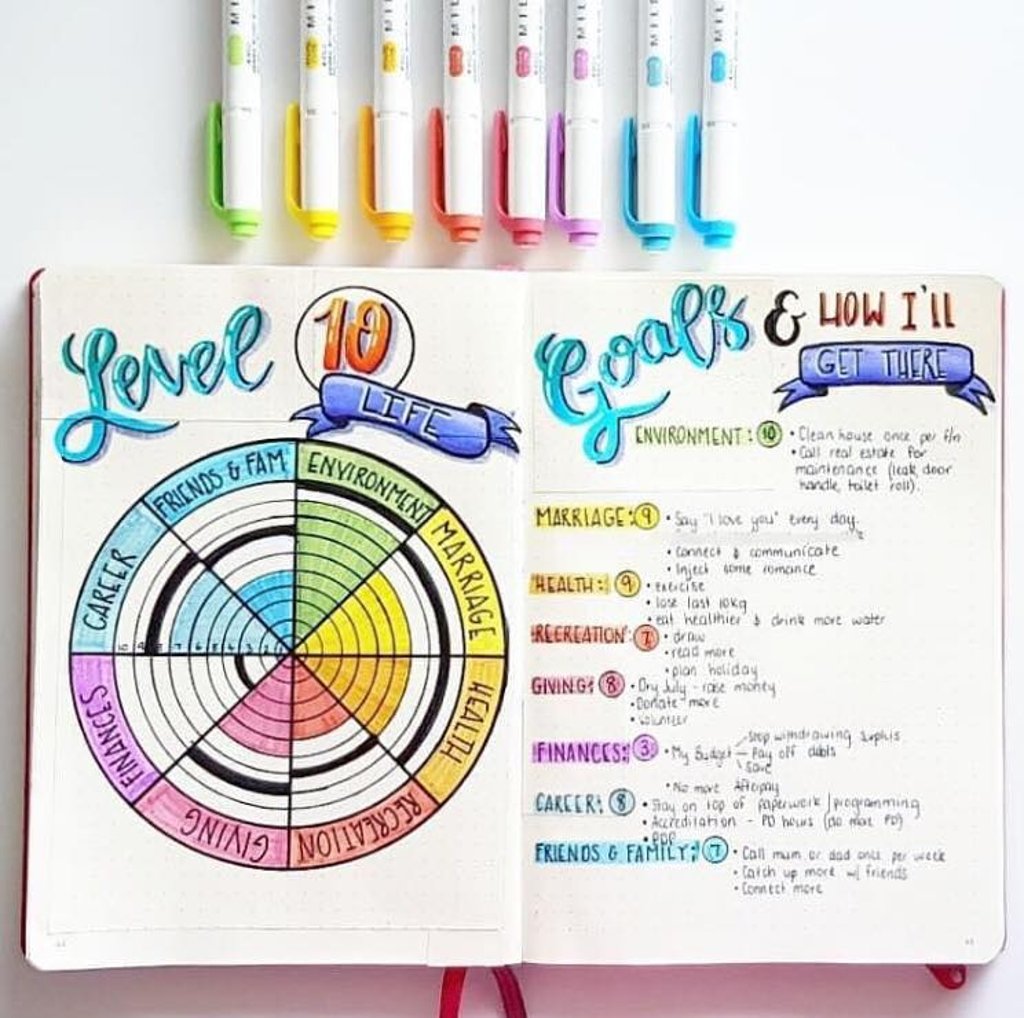 MIL MIL MIL MIL MIL MIL MIL MIL
Level 10
LIFE
FRIENDS & FAM
ENVIRONMENT
MARRIAGE
HEALTH
RECREATION
GIVING
FINANCES
CAREER
Goals & HOW I'll
GET THERE
ENVIRONMENT: 10
• Clean house once per f/n
• Call real estate for
maintenance (leak, door
handle, toilet roll).
MARRIAGE: 9
• Say "I love you" every day.
• Connect & communicate
• Inject some romance
HEALTH: 9
• exercise
• lose last 10kg
• eat healthier & drink more water
RECREATION: 7
• draw
• read more
• plan holiday
GIVING: 8
• Dry July - raise money
• Donate more
• volunteer
FINANCES: 3
• My Budget
Stop withdrawing surplus
Pay off debts
Save
• No more Afterpay
CAREER: 8
• Stay on top of paperwork / programming
• Accreditation - PD hours (do more PD)
• PDP
FRIENDS & FAMILY: 7
• Call mum or dad once per week
• Catch up more w/ friends
• Connect more